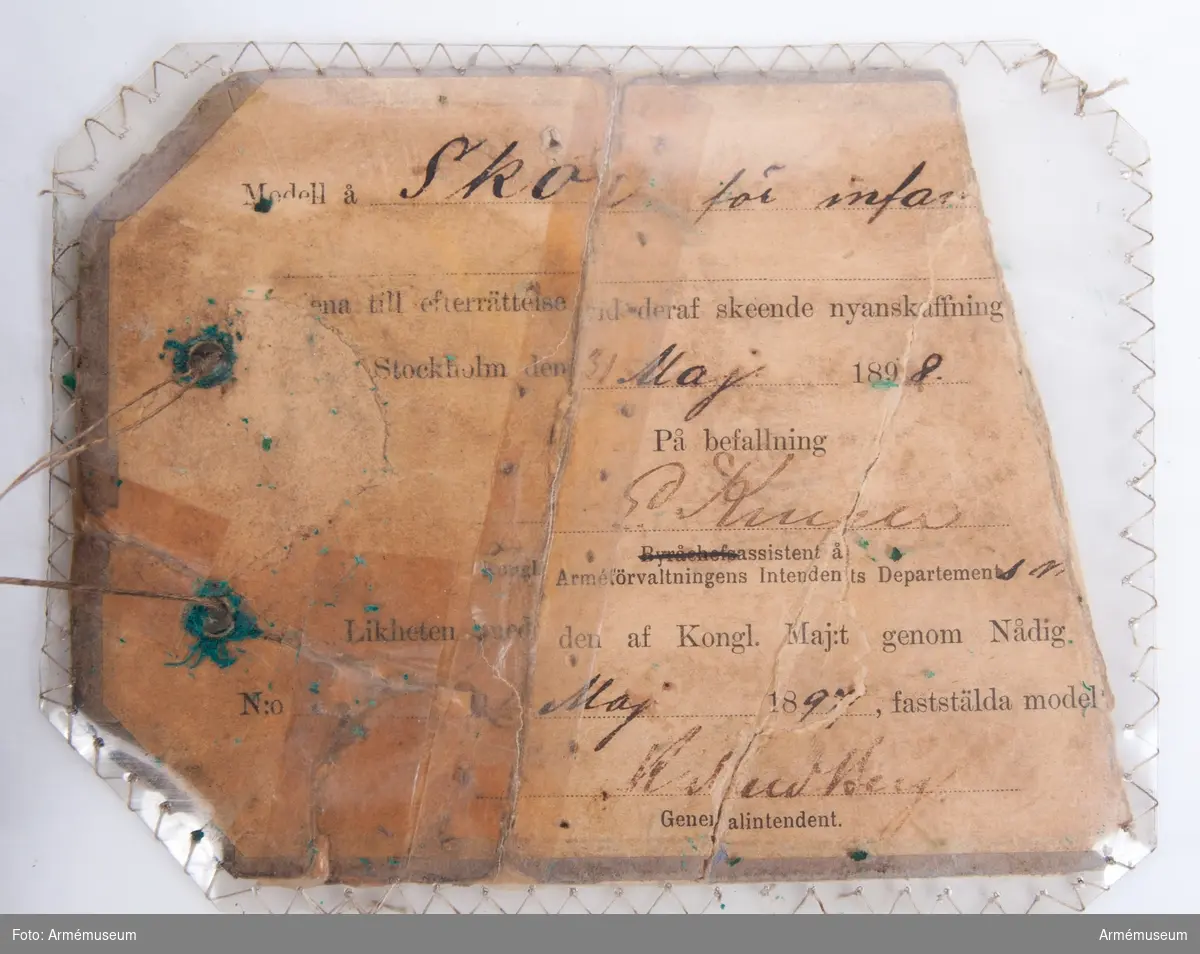 Modell å Sko för infan
ena till efterrättelse vid deraf skeende nyanskaffning
Stockholm den 31 Maj 1898.
På befallning
Byråchefsassistent å
Kongl. Arméförvaltningens Intendents Departement
Likheten med den af Kongl. Maj:t genom Nådig.
N:o Maj 1897, faststälda model
Generalintendent.
Foto: Armémuseum
Armémuseum